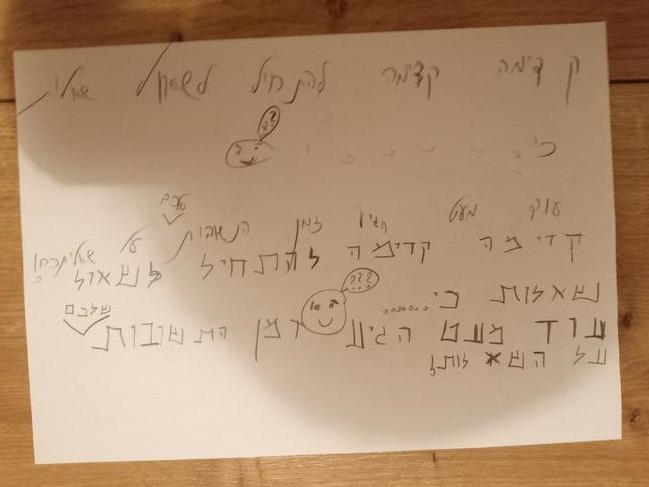 קדימה קדימה להתחיל לשאול שאלו
??
כי
שלכם
עוד מעט הגיע זמן התשובות על שאלתכם!
קדימה קדימה להתחיל לשאול
שאלות כי.......
???
שלכם
עוד מעט הגיע זמן התשובות
על השאלות!